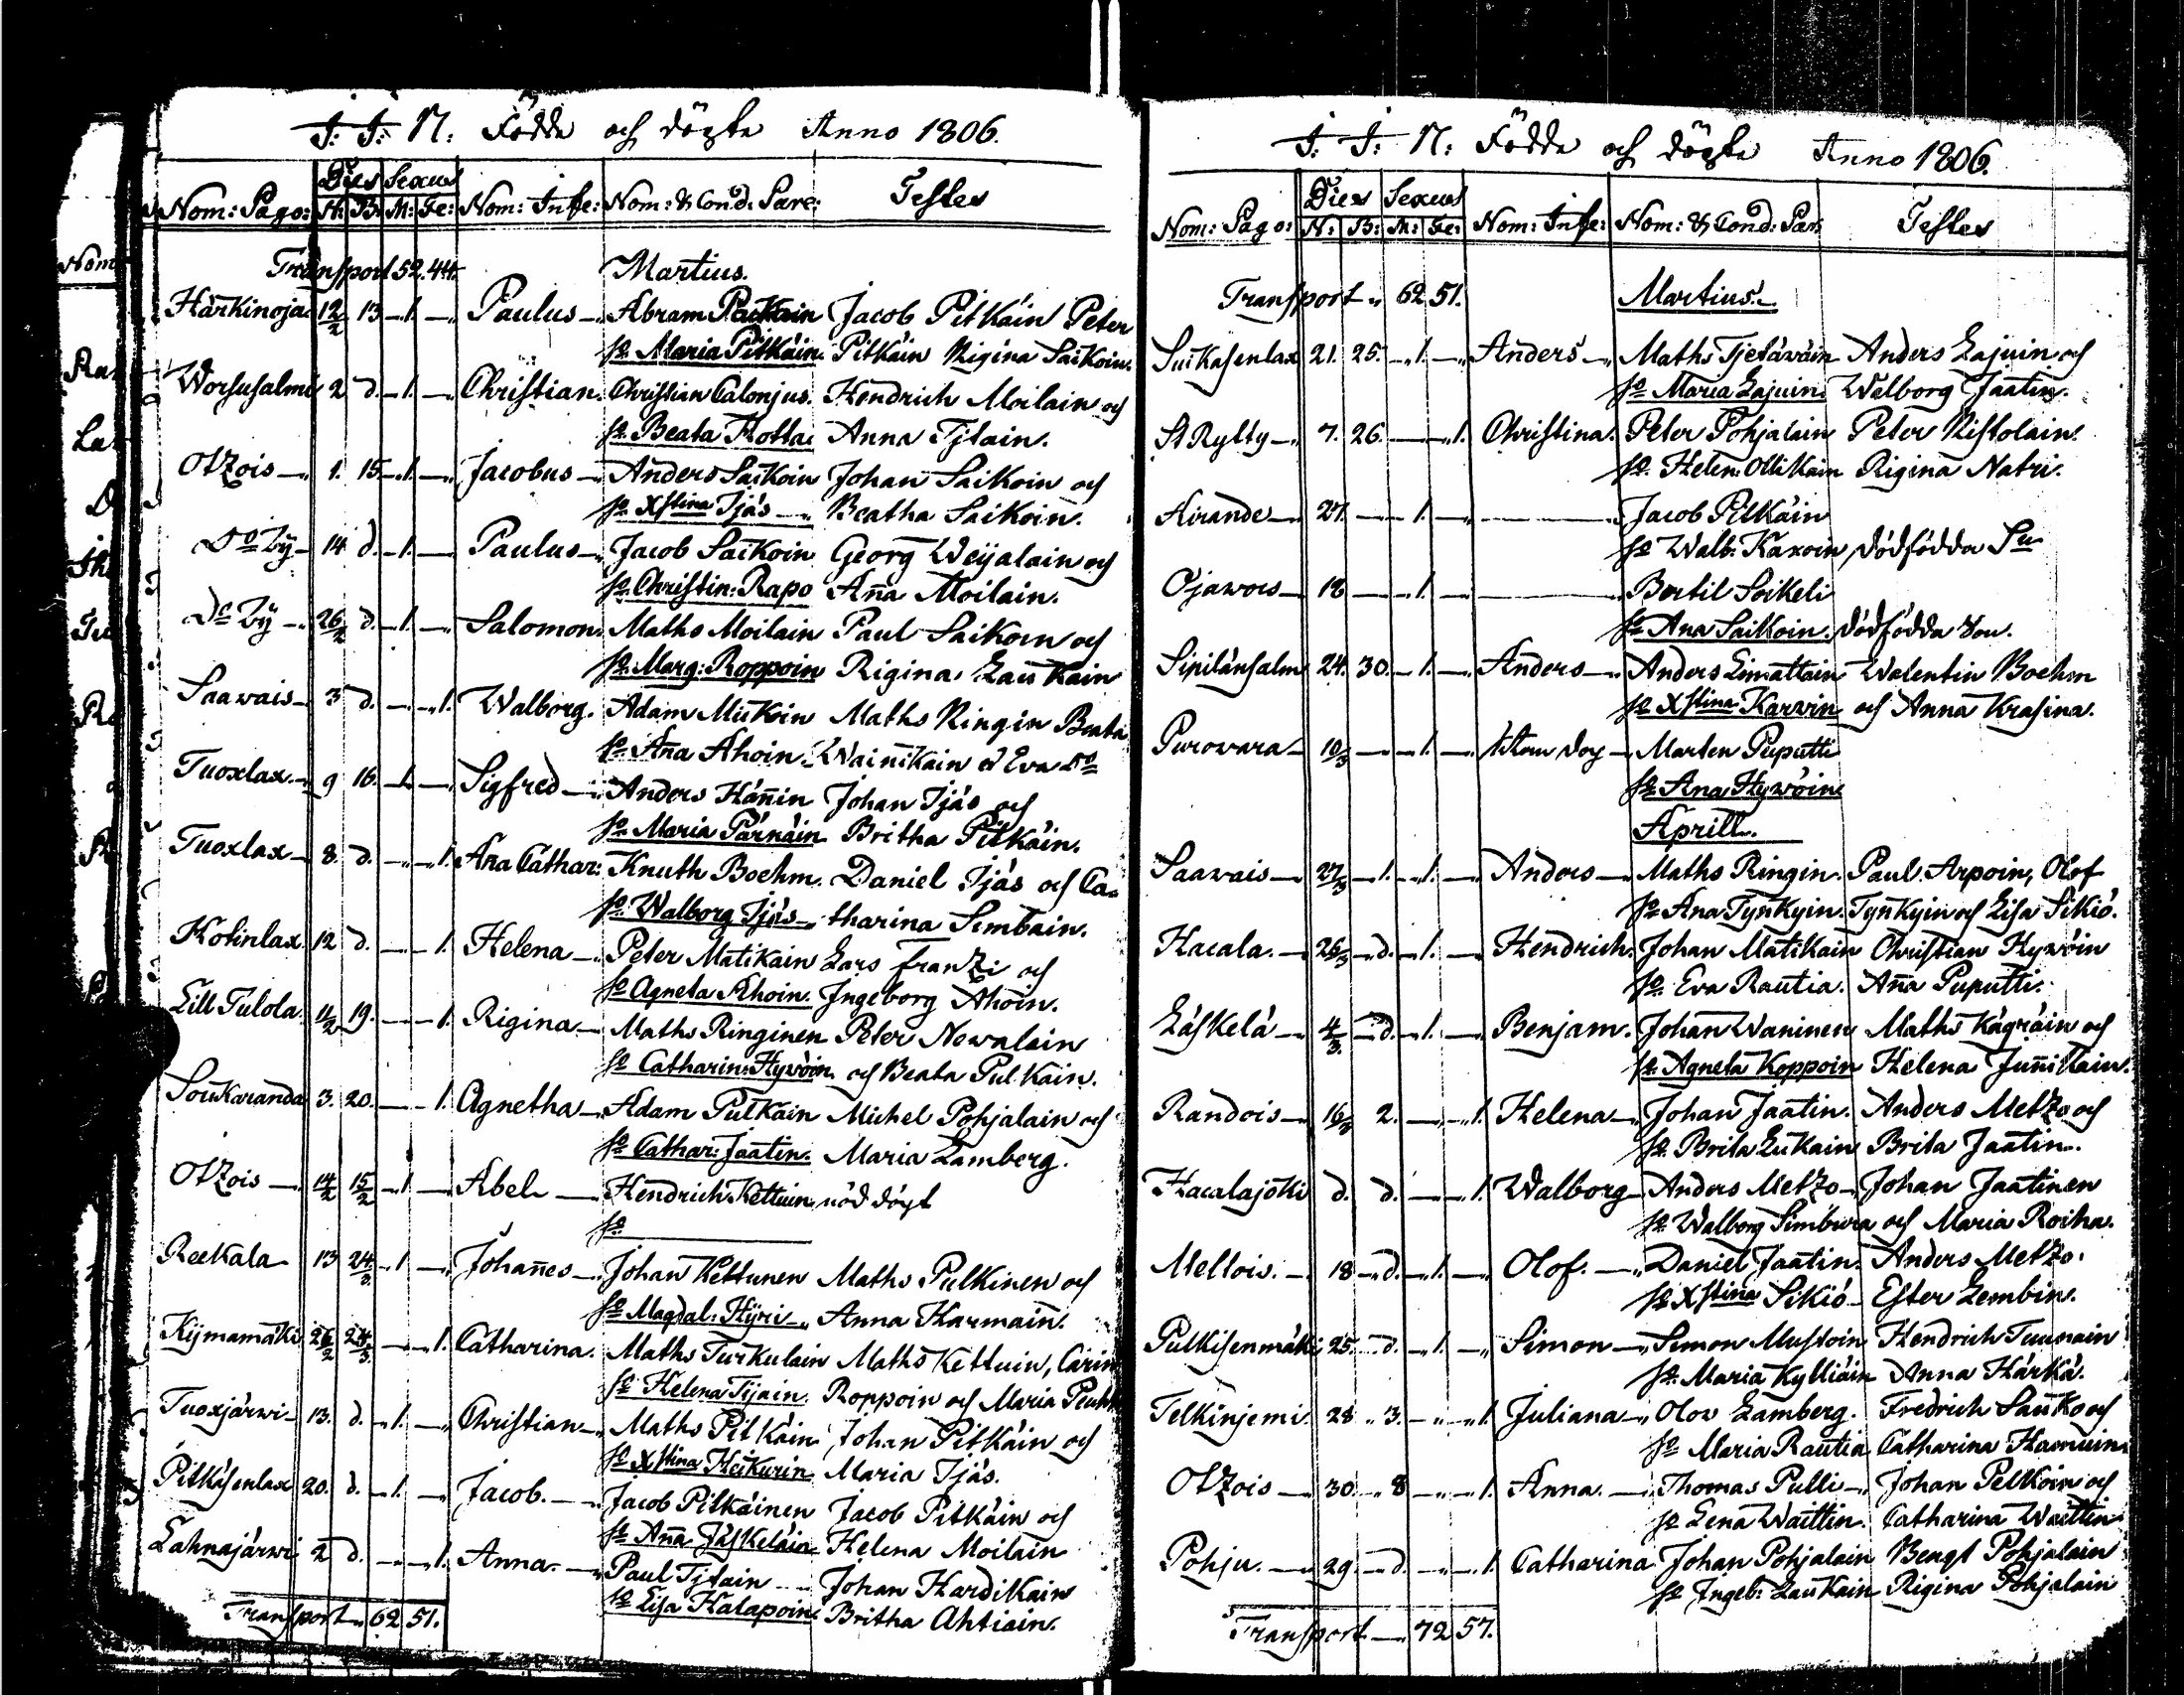 J: J: N: Födde och döpte Anno 1806.
Nom: Pago: Dies N: B: Sexus M: Fe: Nom: Infa: Nom: & Cond: Pare: Testes
Transport 52. 44. Martius.
Härkinoja 12/2 13 1. Paulus Abram Jacob Pitkäin Peter
ho Maria Pitkäin Pitkäin Rigina Saikoin.
Worsusalmi 2 d. 1. Christian. Christian Calonjus. Hendrich Moilain och
ho Beata Kotta Anna Tjtain.
Otzois 1. 15 1. Jacobus Anders Saikoin Johan Saikoin och
ho Xstina Tjäs Beatha Saikoin.
Do by 14 d. 1. Paulus Jacob Saikoin Georg Weijalain och
ho Christin: Rapo Aña Moilain.
Do by 26/2 d. 1. Salomon. Maths Moilain Paul Saikoin och
ho Marg: Roppoin Rigina Laukain
Saawais 3 d. 1. Walborg. Adam Mickoin Maths Ringin Beata
ho Aña Ahoin. Wainikain o Eva Do
Tuoxlax 9 16. 1. Sigfred Anders Häñin Johan Tjäs och
ho Maria Pärnäin Britha Pitkäin.
Tuoxlax 8. d. 1. Aña Cathar: Knuth Boehm. Daniel Tjäs och Ca-
ho Walborg Tjäs tharina Simbain.
Kolinlax. 12 d. 1. Helena Peter Matikain Lars Franzi och
ho Agneta Ahoin. Ingeborg Ahoin.
Lill Tulola. 11/2 19. 1. Rigina Maths Ringinen Peter Newalain
ho Catharin: Hywöin och Beata Pulkain.
Soukaranda 3. 20. 1. Agnetha Adam Pulkain Michel Pohjalain och
ho Cathar: Jaatin. Maria Lamberg.
Otzois 14/2 15/2 1 Abel Hendrich Kettuin nöd döpt
ho
Reekala 13 24/3 1 Johañes Johan Kettunen Maths Pulkinen och
ho Magdal: Hÿri Anna Karmain.
Kijmamäki 26/2 24/3 1. Catharina. Maths Turkulain Maths Kettuin, Carin
ho Helena Tijain. Roppoin och Maria
Tuoxjärwi 13. d. 1. Christian Maths Pitkäin Johan Pitkäin och
ho Xstina Heikurin Maria Tjäs.
Pitkäsenlax 20. d. 1. Jacob. Jacob Pitkäinen Jacob Pitkäin och
ho Aña Jäskeläin Helena Moilain
Lahnajärwi 2 d. 1. Anna. Paul Tjtain Johan Hardikain
ho Lisa Halapoin. Britha Ahtiain.
Transport 62 51.
J: J: N: Födde och döpte Anno 1806.
Nom: Pago: Dies N: B: Sexus M: Fe: Nom: Infe: Nom: & Cond: Par: Testes
Transport 62 51. Martius.
Suikasenlax 21. 25. 1. Anders Maths Tjetäwäin Anders Lajuin och
ho Maria Lajuin Walborg Jaatin.
St Rytty 7. 26. 1. Christina. Peter Pohjalain Peter Ristolain.
ho Helen: Ollikain Rigina Natri.
Airande 27. 1. Jacob Pitkäin
ho Walb: Kaxoin dödfödda Sn
Ojawois 18 1. Bertil Soikeli
ho Ana Saikoin. dödfödda Son.
Sipilänsalm 24. 30. 1. Anders Anders Limattain Walentin Boehm
ho Xstina Karvin och Anna Krasina.
Purovara 10/3 1. utom dop Marten Puputti
ho Ana Hywöin
Aprill.
Saawais 27/3 1. 1. Anders Maths Ringin. Paul Arpoin, Olof
ho Ana Tynkyin. Tynkyin och Lisa Sikiö.
Hacala. 26/3 d. 1. Hendrich. Johan Matikain Christian Hywöin
ho Eva Rautia. Aña Puputti.
Läskelä 4/3. d. 1. Benjam. Johan Waninen Maths Kägräin och
ho Agneta Koppoin Helena Juñikain.
Randois 16/3 2. 1. Helena Johan Jaatin. Anders Metzo och
ho Brita Lukain Brita Jaatin.
Hacalajoki d. d. 1. Walborg Anders Metzo Johan Jaatinen
ho Walborg Simbura och Maria Roiha.
Mellois. 18 d. 1. Olof. Daniel Jaatin. Anders Metzo.
ho Xstina Sikiö Ester Lembin.
Pulkisenmäki 25. d. 1. Simon Simon Mustoin Hendrich Tuunain
ho Maria Kylliäin Anna Härkä.
Telkinjemi 28 3. 1. Juliana Olov Lamberg. Fredrich Sauko och
ho Maria Rautia Catharina Hamuin
Otzois 30 8 1. Anna. Thomas Pulli Johan Pelkoin och
ho Lena Waittin. Catharina Waittin
Pohju. 29 d. 1. Catharina Johan Pohjalain Bengt Pohjalain
ho Ingeb: Laukain Rigina Pohjalain
Transport 72 57.